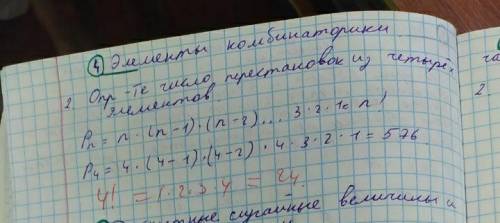 ④ Элементы комбинаторики.
2. Опр-те число перестановок из четырёх
элементов.
Pn = n · (n-1) · (n-2) ... 3 · 2 · 1 = n!
P4 = 4 · (4-1) · (4-2) · 4 · 3 · 2 · 1 = 576
4! = 1 · 2 · 3 · 4 = 24
случайные величины и
2.